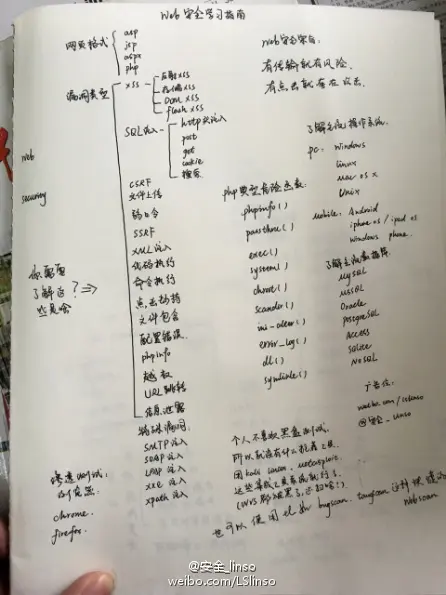 Web安全学习指南
网页格式
asp
jsp
aspx
php
漏洞类型
xss
反射xss
存储xss
Dom xss
flash xss
SQL注入
http头注入
post
get
cookie
搜索
CSRF
文件上传
弱口令
SSRF
XML注入
代码执行
命令执行
点击劫持
文件包含
配置错误
phpinfo
越权
URL跳转
信息泄露
特殊漏洞:
SMTP注入
SOAP注入
LDAP注入
xxe注入
xpath注入
web
security
你需要
了解这
些是啥 ? =>
渗透测试
浏览器:
chrome.
firefox.
php典型危险函数:
phpinfo()
passthru()
exec()
system()
chroot()
scandir()
ini-alter()
error_log()
dl()
symlink()
web安全来自:
有传输就有风险.
有点击就存在攻击.
了解主流操作系统.
pc: windows
linux
mac os x
Unix
mobile: Android
iphone os / ipad os
windows phone.
了解主流数据库
MySQL
MSSQL
Oracle
PostgreSQL
Access
SQlite
NoSQL
广告位:
weibo.com/LSlinso
@安全_linso
个人不喜欢黑盒测试,
所以就没有什么扫描工具.
用kali linux, metasploit.
这些集成工具系统就行了.
也可以使用
bugscan. tangscan 这种快速的
Webscan
@安全_linso
weibo.com/LSlinso